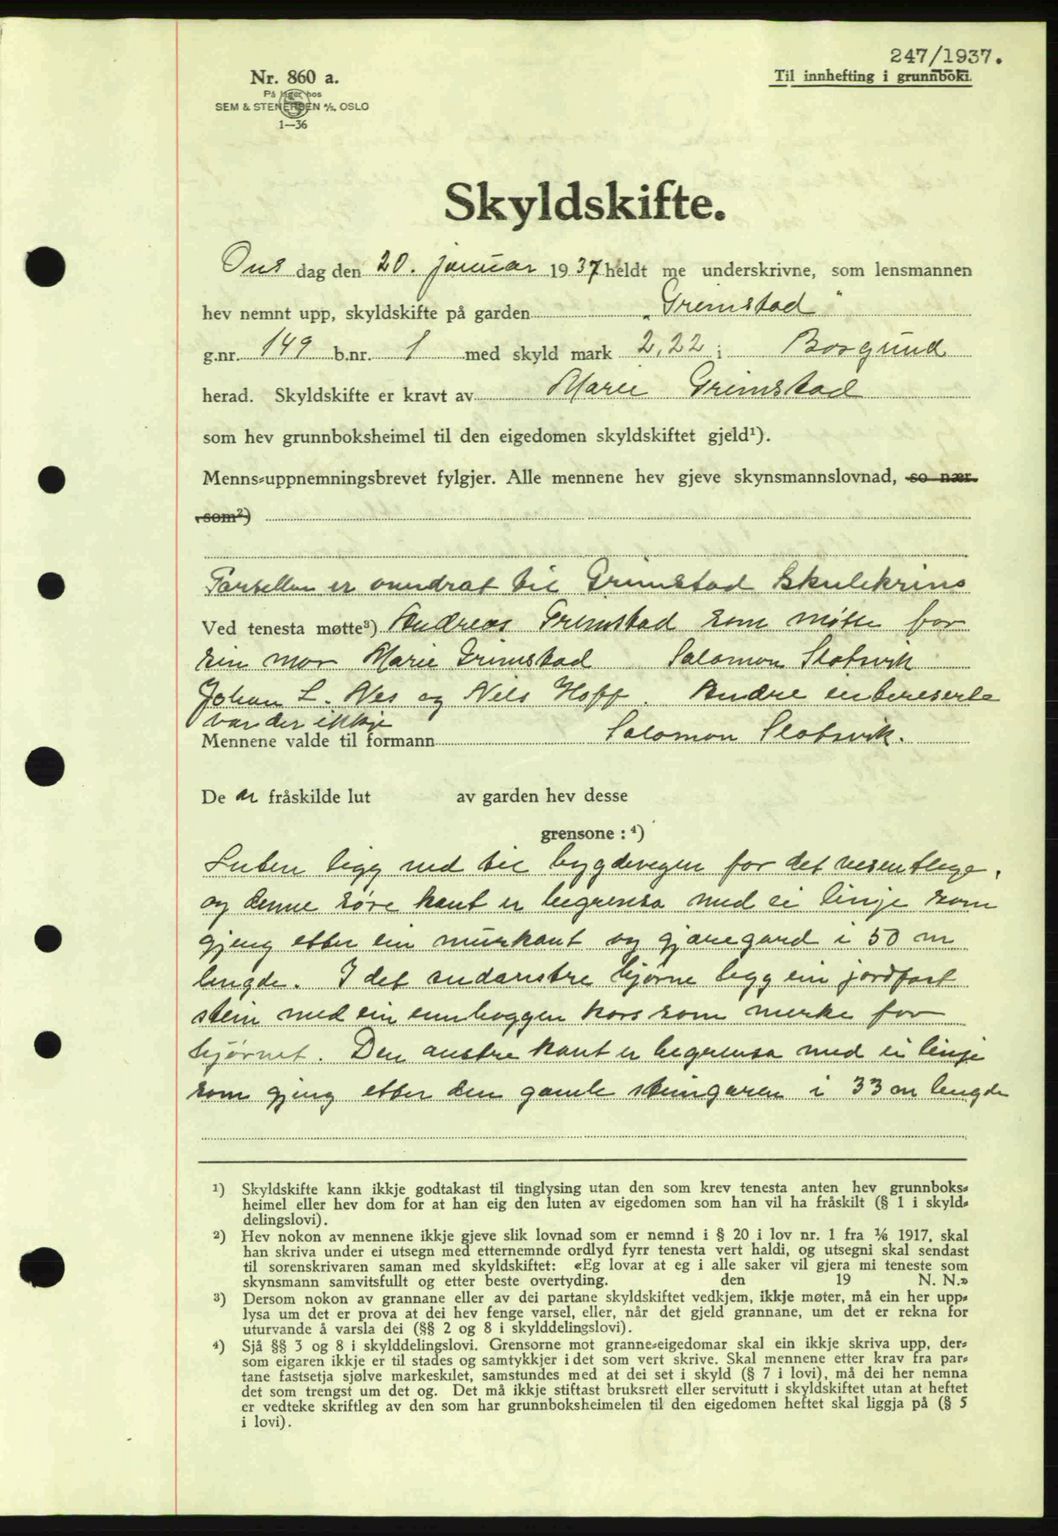 247/1937.
Til innhefting i grunnboki.
Nr. 860 a.
På lager hos
SEM & STENERSEN A/S, OSLO
1—36
Skyldskifte.
Ons dag den 20. januar 1937 heldt me underskrivne, som lensmannen
hev nemnt upp, skyldskifte på garden „Grimstad"
g.nr. 149 b.nr. 1 med skyld mark 2,22 i Borgund
herad. Skyldskifte er kravt av Marie Grimstad
som hev grunnboksheimel til den eigedomen skyldskiftet gjeld¹).
Menns-uppnemningsbrevet fylgjer. Alle mennene hev gjeve skynsmannslovnad, so nær
som²)
Parsellen er overdrat til Grimstad Skulekrins
Ved tenesta møtte³) Andreas Grimstad som møtte for
sin mor Marie Grimstad Salomon Slotsvik
Johan L. Nes og Nils Hoff. Andre intereserte
var der ikkje
Mennene valde til formann Salomon Slotsvik.
De n fråskilde lut av garden hev desse
grensone: ⁴)
Luten ligg ned til bygdevegen for det vesentlege,
og denne søre kant er begrensa med ei linje som
gjeng etter ein murkant og gjæregard i 50 m
lengde. I det sudaustre hjørne legg ein jordfast
stein med ein innhoggen kors som merke for
hjørnet. Den austre kant er begrensa med ei linje
som gjeng etter den gamle steingaren i 33 m lengde
¹) Skyldskifte kann ikkje godtakast til tinglysing utan den som krev tenesta anten hev grunnboks-
heimel eller hev dom for at han eig den luten av eigedomen som han vil ha fråskilt (§ 1 i skyld-
delingslovi).
²) Hev nokon av mennene ikkje gjeve slik lovnad som er nemnd i § 20 i lov nr. 1 fra 1/6 1917, skal
han skriva under ei utsegn med etternemnde ordlyd fyrr tenesta vert haldi, og utsegni skal sendast
til sorenskrivaren saman med skyldskiftet: «Eg lovar at eg i alle saker vil gjera mi teneste som
skynsmann samvitsfullt og etter beste overtyding. den 19 N. N.»
³) Dersom nokon av grannane eller av dei partane skyldskiftet vedkjem, ikkje møter, må ein her upp-
lysa um det er prova at dei hev fenge varsel, eller, når det gjeld grannane, um det er rekna for
uturvande å varsla dei (§§ 2 og 8 i skylddelingslovi).
⁴) Sjå §§ 3 og 8 i skylddelingslovi. Grensorne mot granne-eigedomar skal ein ikkje skriva upp, der-
som eigaren ikkje er til stades og samtykkjer i det som vert skrive. Skal mennene etter krav fra par-
tane fastsetja sjølve markeskilet, samstundes med at dei set i skyld (§ 7 i lovi), må dei her nemna
det som trengst um det og. Det må ikkje stiftast bruksrett eller servitutt i skyldskiftet utan at heftet
er vedteke skriftleg av den som har grunnboksheimelen til den eigedomen heftet skal liggja på (§ 5
i lovi).